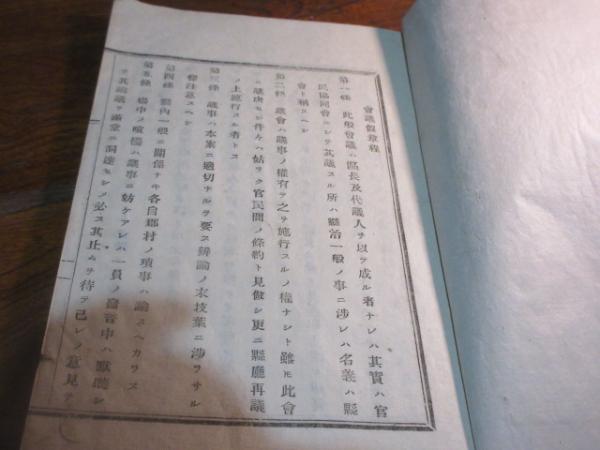 會議假章程
第一條 此般會議ハ區長及代議人ヲ以テ成ル者ナレハ其實ハ官
民協同會ニシテ其議スル所ハ縣治一般ノ事ニ涉レハ名義ハ縣
會ト稱スヘシ
第二條 議會ハ議事ノ權有テ之ヲ施行スルノ權ナシト雖モ此會
ニ議決セシ件々ハ姑ラク官民間ノ條約ト見做シ更ニ縣廳再議
ノ上施行スル者トス
第三條 議事ハ本案ニ適切ナルヲ要ス辨論ノ末枝葉ニ涉ラサル
樣注意スヘシ
第四條 管內一般ニ關係ナキ各自鄕村ノ瑣事ハ論スヘカラス
第五條 場中ノ喧擾ハ議事ニ妨ケアレハ一員ノ發音中ハ默聽シ
テ其論議ヲ滿堂ニ洞達セシメ必ス其止ムヲ待テ己レノ意見ヲ